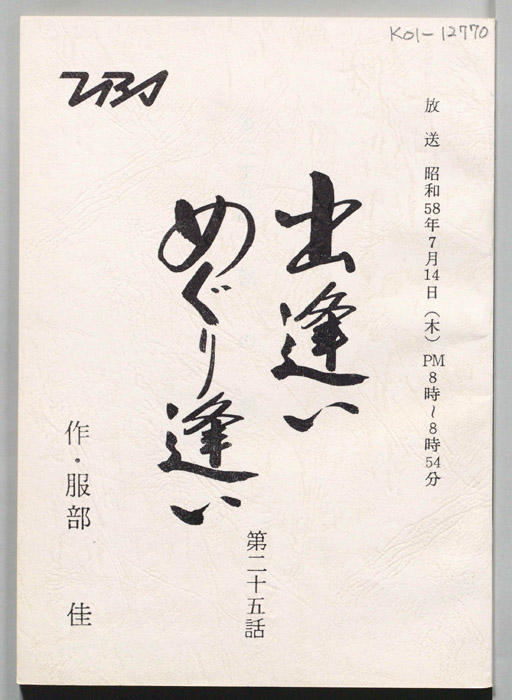 K01-12770
TBS
放送 昭和58年7月14日(木)PM8時~8時54分
出逢い
めぐり逢い
第二十五話
作・服部 佳